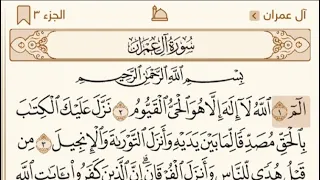 آل عمران الجزء ٣
سُورَةُ آلِ عِمْرَانَ
بِسْمِ اللَّهِ الرَّحْمَٰنِ الرَّحِيمِ
الٓمٓ ١ اللَّهُ لَا إِلَٰهَ إِلَّا هُوَ الْحَيُّ الْقَيُّومُ ٢ نَزَّلَ عَلَيْكَ الْكِتَابَ
بِالْحَقِّ مُصَدِّقًا لِّمَا بَيْنَ يَدَيْهِ وَأَنزَلَ التَّوْرَىٰةَ وَالْإِنجِيلَ ٣ مِن
قَبْلُ هُدًى لِّلنَّاسِ وَأَنزَلَ الْفُرْقَانَ ۗ إِنَّ الَّذِينَ كَفَرُوا بِـَٔايَٰتِ اللَّهِ